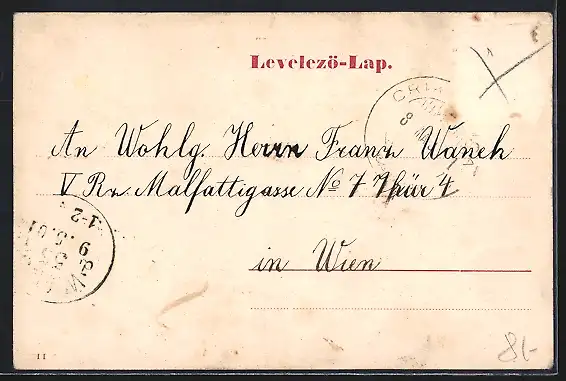 Levelező-Lap.
An Wohlg. Herrn Franz Wanek
V Rz. Malfattigasse No 7 Thür 4
in Wien
8
1-2
9.5.01
11
8L-